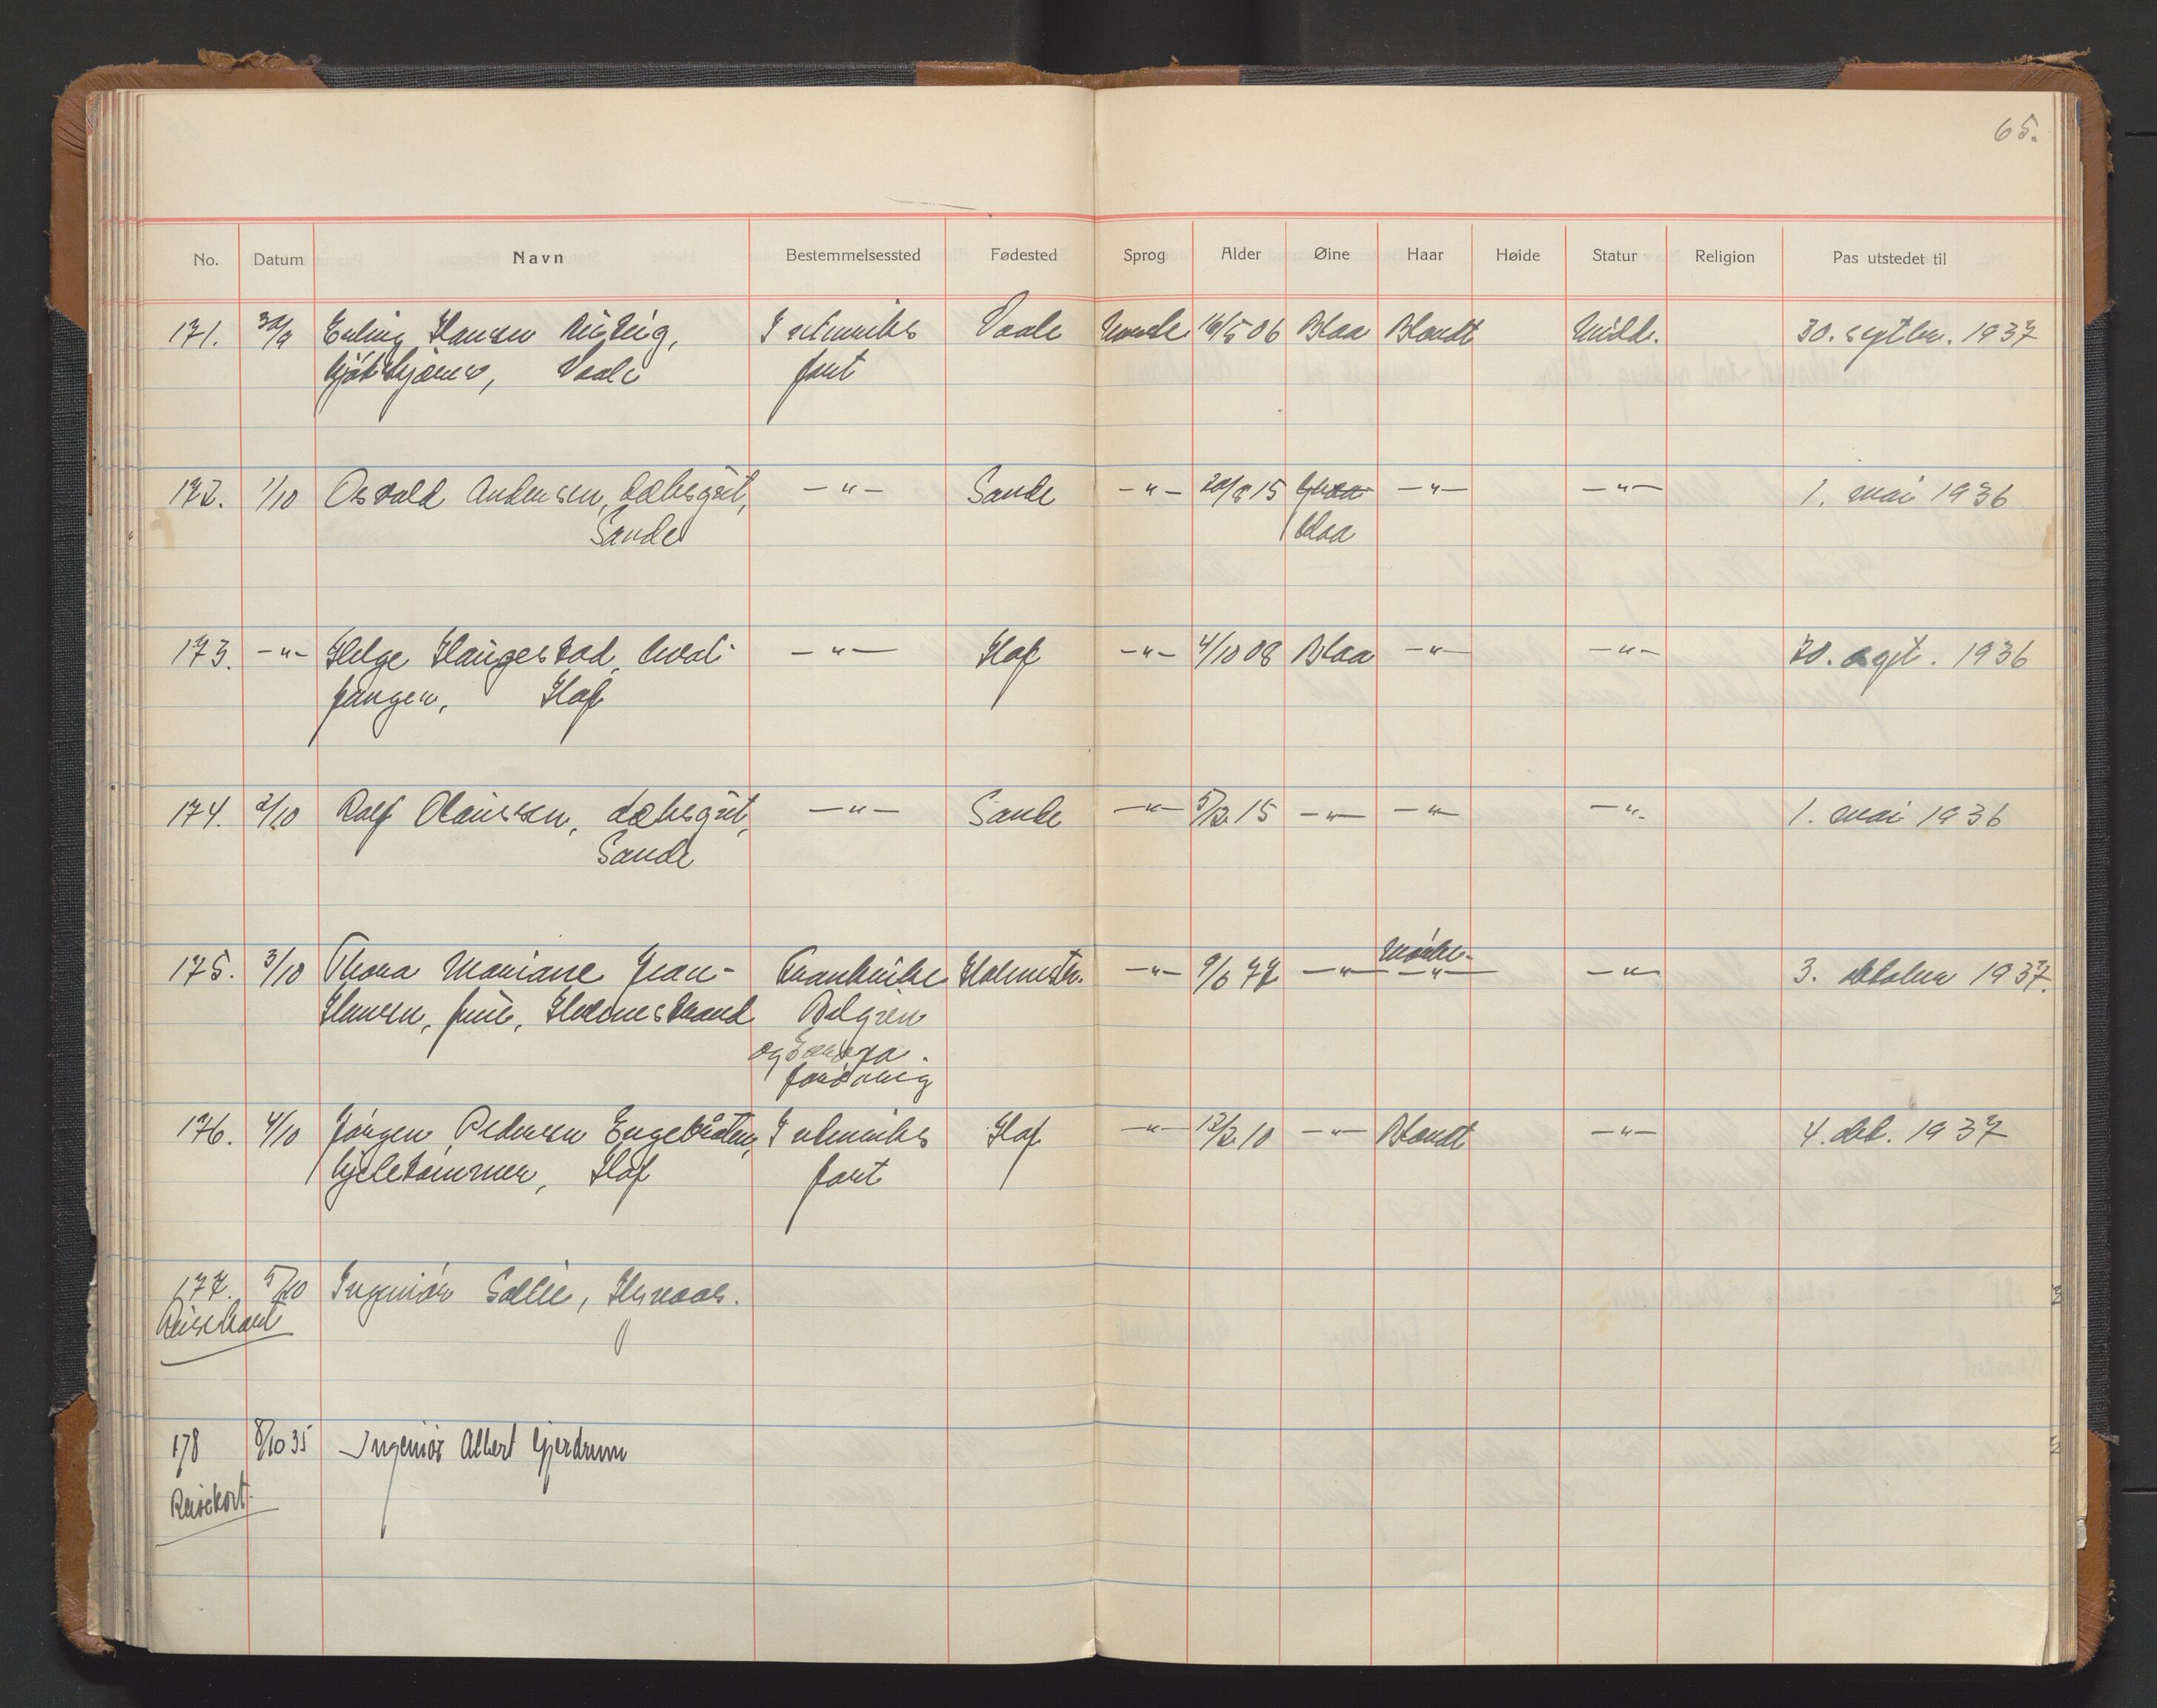 65.
No. Datum Navn Bestemmelsessted Fødested Sprog Alder Øine Haar Høide Statur Religion Pas utstedet til
171. 30/9 Erling Hansen Utenriks Vaale Norsk 16/5 06 Blaa Blondt Midd. 30. septbr. 1937
Vaale fart
172. 1/10 Osvald Andersen, dæksgut, -"- Sande -"- 20/8 15 -"- -"- 1. mai 1936
Sande blaa
173. -"- Helge Haugestad, hval- -"- Hof -"- 4/10 08 Blaa -"- -"- 30. sept. 1936
fanger, Hof
174. 2/10 Rolf Olaussen, dæksgut, -"- Sande -"- 5/12 15 -"- -"- -"- 1. mai 1936
Sande
Mørke
175. 3/10 Thora Mariane Gran- Frankrike Holmestr. -"- 9/6 77 -"- -"- -"- 3. oktober 1937.
Hansen, frue, Holmestrand Belgien
og Europa
176. 4/10 Jørgen Pedersen Engebråten, Utenriks Hof -"- 13/2 10 -"- Blondt -"- 4. okt. 1937
Hof fart
177. 5/10 Ingeniør Sollie,
Reisekort
178 8/10 35 Ingeniør Albert Gjerdrum
Reisekort.